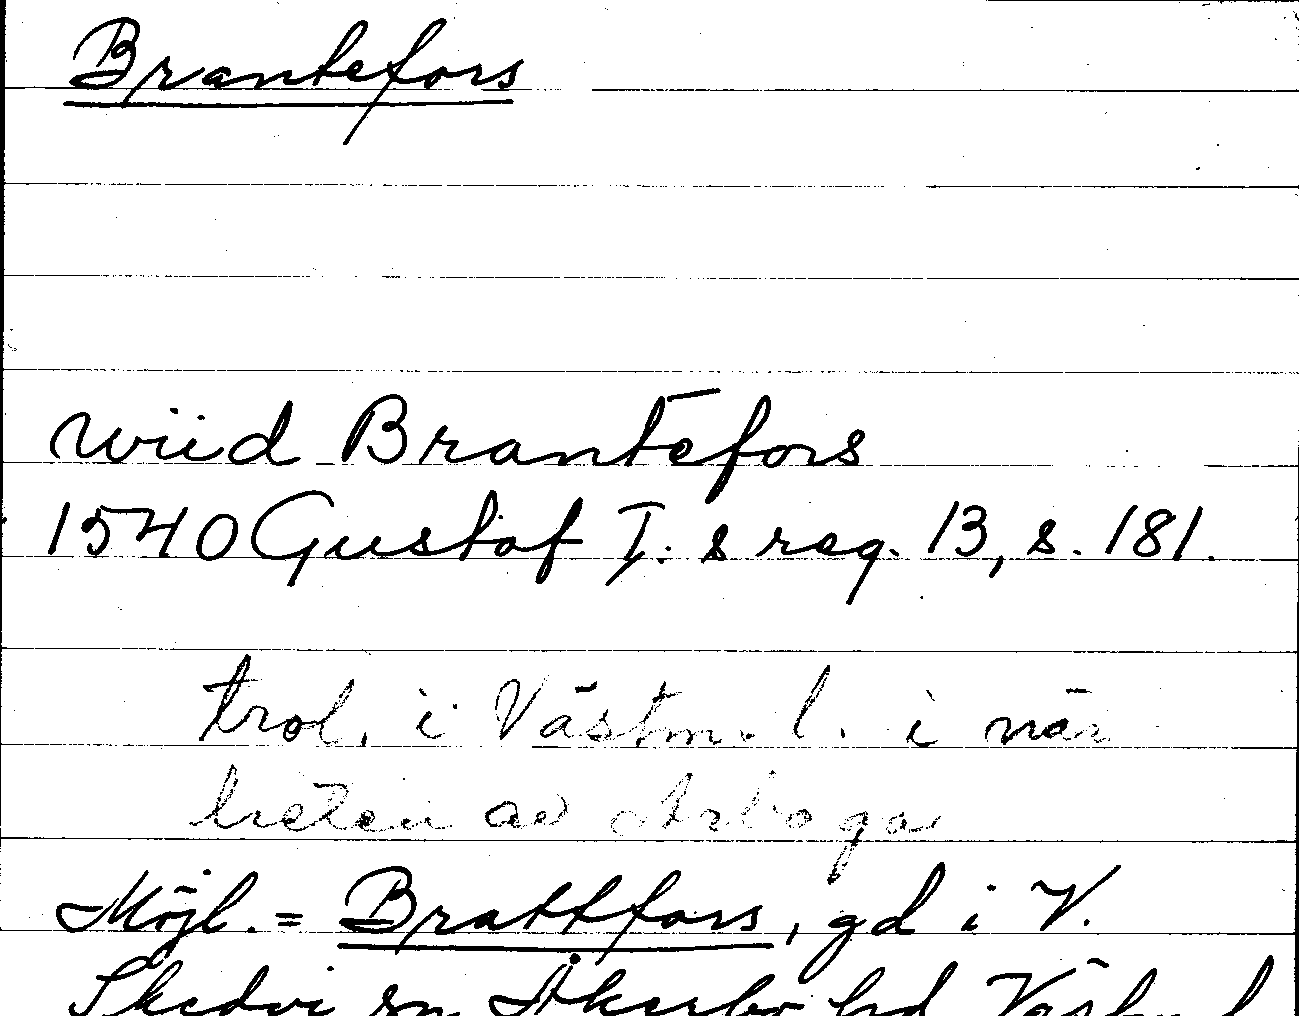 Brantefors
wiid Brantefors
1540 Gustaf I:s reg. 13, s. 181.
trol. i Västm. l. i när
heten av Arboga
Möjl. = Brattfors, gd i V.
Skedvi sn Åkerbo hd Västm l